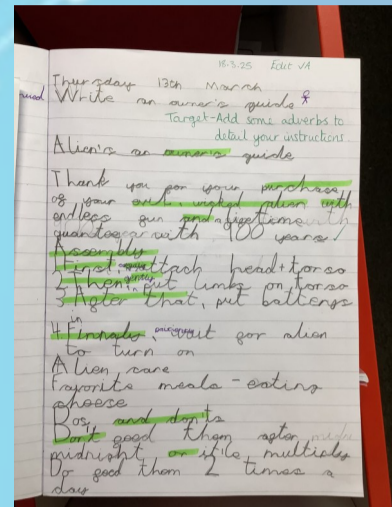 18-3.25 Edit VA
Thursday 13th March
Write an owner's guide
Target-Add some adverbs to
detail your instructions.
Alien's an owner's guide
Thank you for your purchase
of your evil, wicked alien with
endless fun and a lifetime with
guarantee with 900 years!
Assembly
1 First, attach head + torso
2 Then, gently put limbs on torso
3 After that, put batterys
in
4 Finnaly, wait for alien
to turn on
Alien care
Favorite meals - eating
cheese
Dos, and don'ts
Don't feed them after
midnight or it'll multiply
Do feed them 2 times a
day